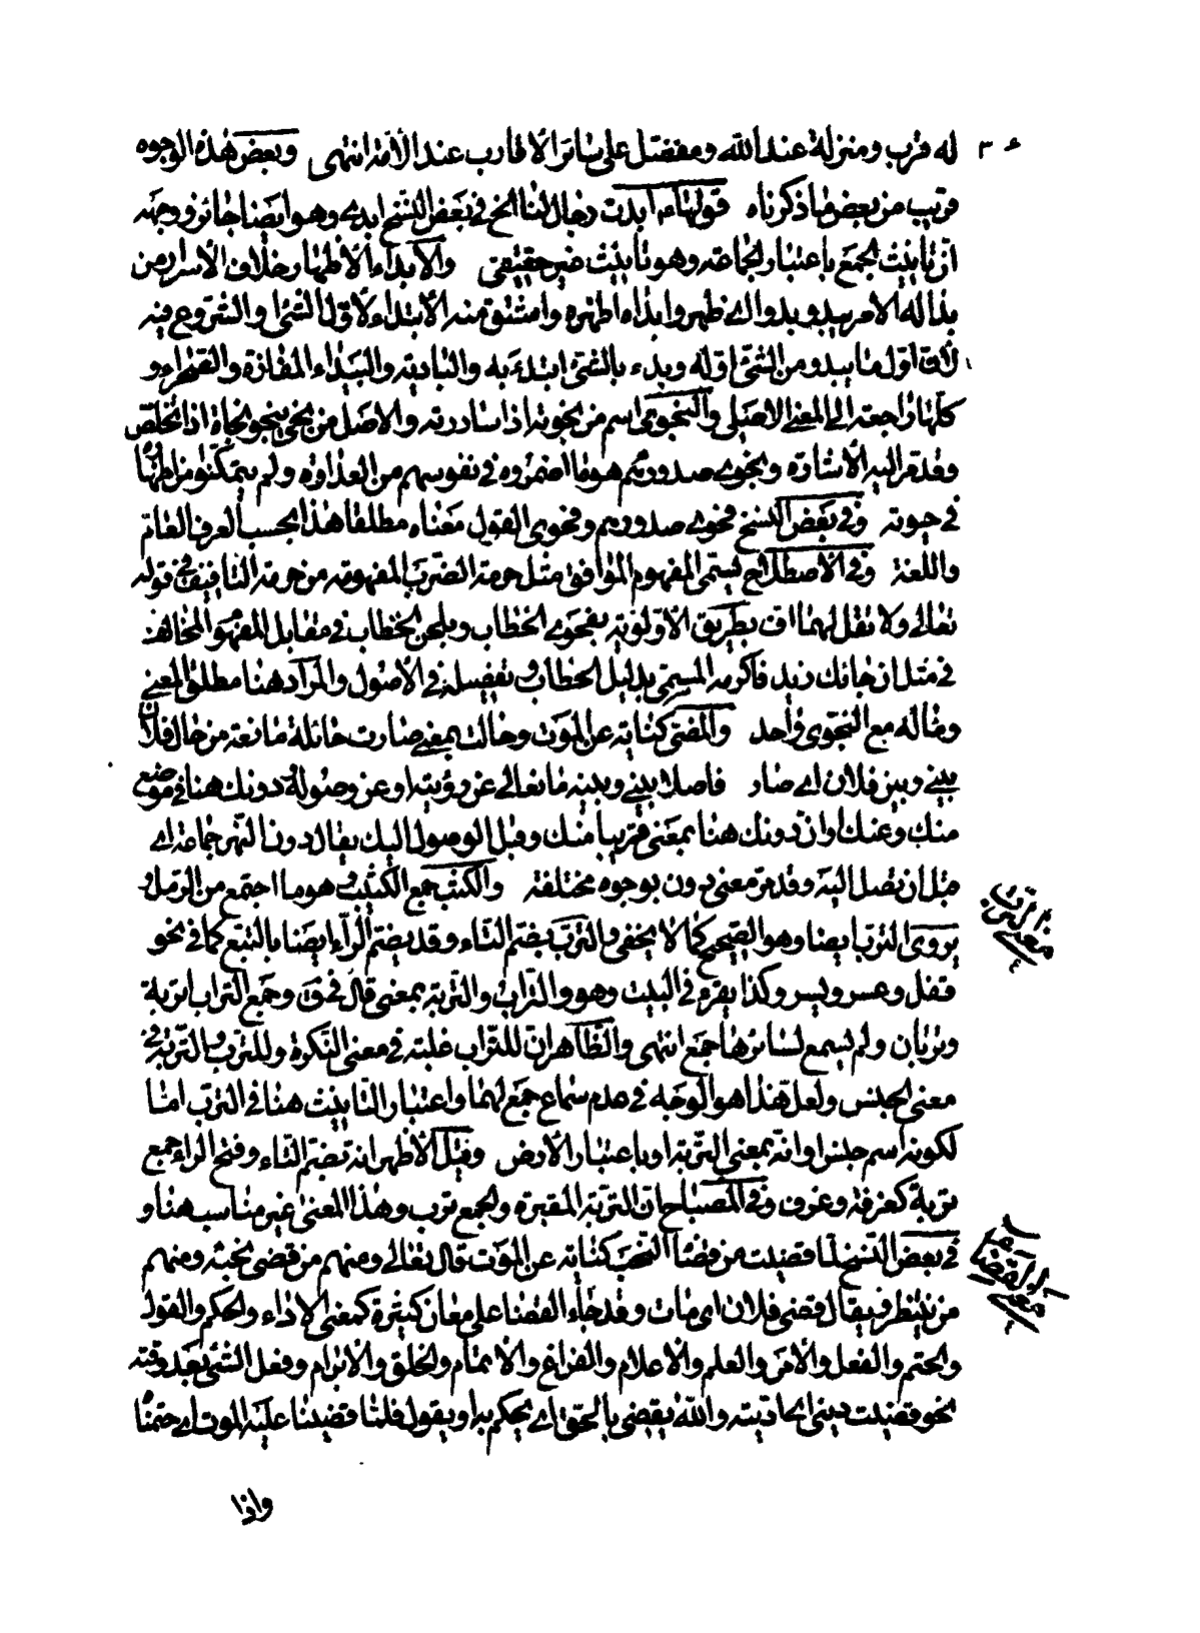 ٣٠٤
له قرب ومنزلة عند الله ومفضل على سائر الأقارب عند الأمة انتهى وبعض هذه الوجوه
قريب من بعض ما ذكرناه قولها ع أبدت رجال لنا الخ في بعض النسخ ابدى وهو ايضا جائز ووجهه
ان تانيث الجمع باعتبار الجماعة وهو تانيث غير حقيقي والابداء الاظهار خلاف الاسرار من
بدا له الامر يبدو بدوا اى ظهر وابداه اظهره واشتق منه الابتداء لاول الشئ والشروع فيه
لان اول ما يبدو من الشئ اوله وبدء بالشئ ابتدء به والبادية والبيداء المفازة والصحراء و
كلها راجعة الى المعنى الاصلى والنجوى اسم من نجوته اذا ساررته والاصل من نجى ينجو نجاة اذا تخلص
وقد مر اليه الاشارة ونجوى صدورهم هو ما اضمروه في نفوسهم من العداوة ولم يتمكنوا من اظهارها
في حيوته وفي بعض النسخ فحوى صدورهم وفحوى القول معناه مطلقا هذا بحسب العرف العام
واللغة وفي الاصطلاح يسمى المفهوم الموافق مثل حرمة الضرب المفهومة من حرمة التافيف في قوله
تعالى ولا تقل لهما اف بطريق الاولوية بفحوى الخطاب وبلحن الخطاب في مقابل المفهوم المخالف
في مثل ان جائك زيد فاكرمه المسمى بدليل الخطاب وتفصيله في الاصول والمراد هنا مطلق المعنى
وماله مع النجوى واحد والمضى كناية عن الموت وحالت بمعنى صارت حائلة مانعة من حال فلان
بينى وبين فلان اى صار فاصلا بينى وبينه مانعا لى عن رؤيته او عن وصوله ودونك هنا في موضع
منك وعنك او ان دونك هنا بمعنى قريبا منك وقبل الوصول اليك يقال دون النهر جماعة اى
قبل ان تصل اليه وقد مر معنى دون بوجوه مختلفة والكثب جمع الكثيب وهو ما اجتمع من الرمل و
يروى الترب ايضا وهو الصحيح كما لا يخفى والترب بضم التاء وقد يضم الراء ايضا بالتبع كما في نحو
قفل وعسر ويسر وكذا يقرء في البيت وهو والتراب والتربة بمعنى قال في ق وجمع التراب اتربة
وتربان ولم يسمع لسائرها جمع انتهى والظاهر ان للتراب غلبة في معنى النكرة وللترب والتربة في
معنى الجنس ولعل هذا هو الوجه في عدم سماع جمع لهما واعتبار التانيث هنا في الترب اما
لكونه اسم جنس او انه بمعنى التربة او باعتبار الارض وقيل الاظهر انه بضم التاء وفتح الراء جمع
تربة كغرفة وغرف وفي المصباح ان التربة المقبرة والجمع ترب وهذا المعنى غير مناسب هنا و
في بعض النسخ لما قضيت من قضاء النحب كناية عن الموت قال تعالى ومنهم من قضى نحبه ومنهم
من ينتظر فيقال قضى فلان اى مات وقد جاء القضاء على معان كثيرة كمعنى الاداء والحكم والقول
والحتم والفعل والامر والعلم والاعلام والفراغ والاتمام والخلق والابرام وفعل الشئ بعد وقته
نحو قضيت دينى اى اديته والله يقضى بالحق اى يحكم به او يقول فلما قضينا عليه الموت اى حتمنا
معنى الترب
معنى القضاء
واذا